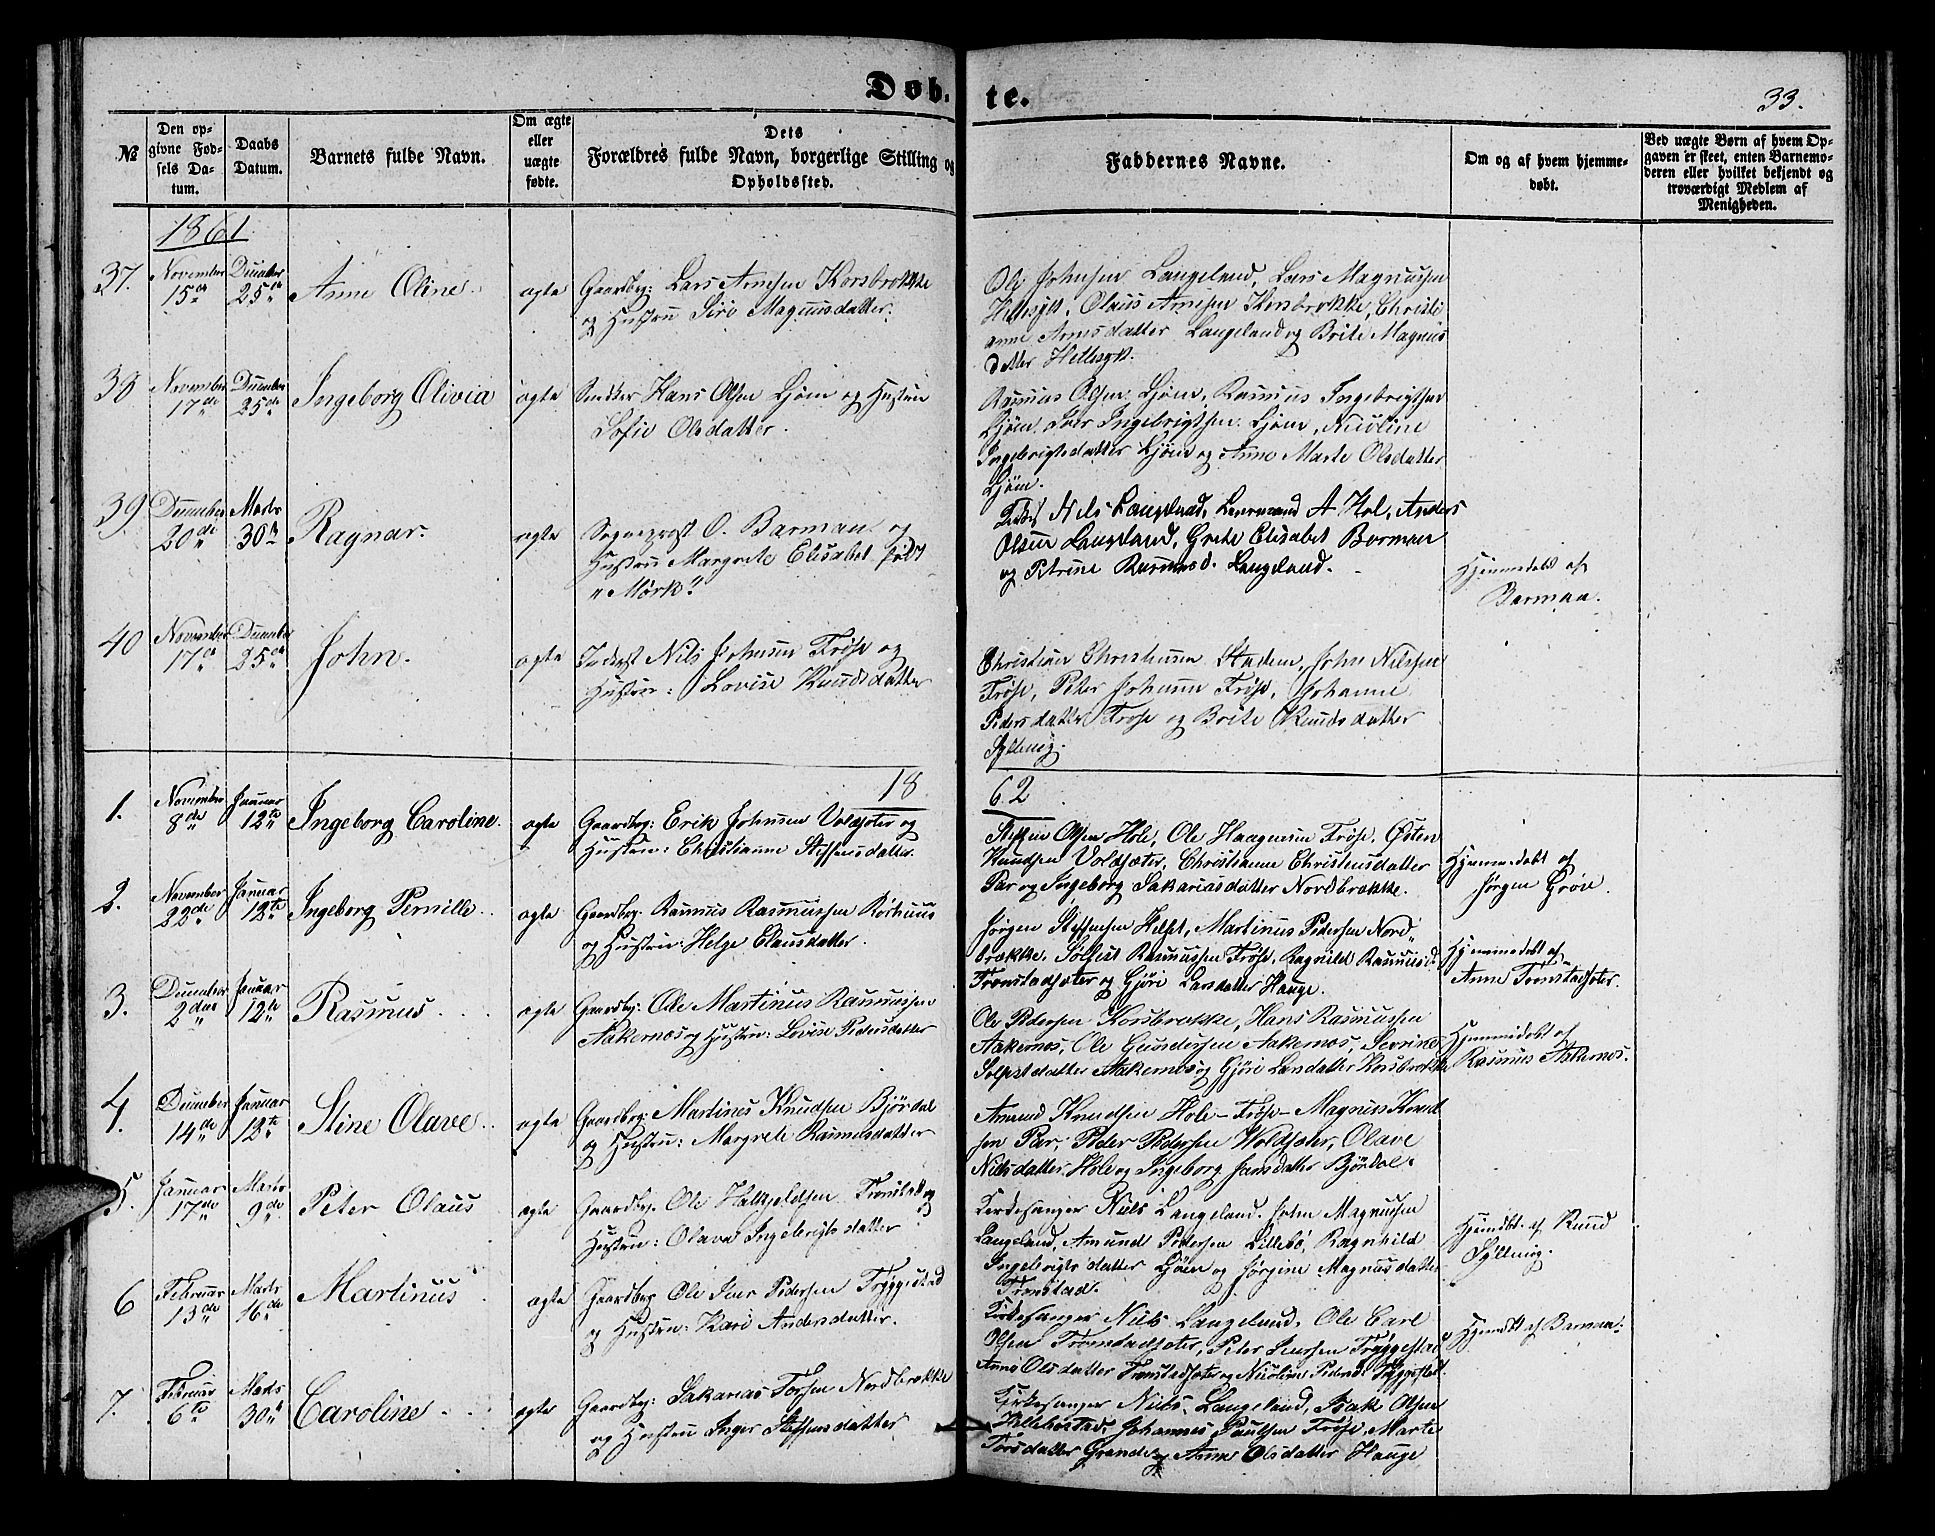 Døb.
te.
33.
№
Den op-
givne Fød-
sels Da-
tum.
Daabs
Datum.
Barnets fulde Navn.
Om ægte
eller
uægte
fødte.
Dets
Forældres fulde Navn, borgerlige Stilling og
Opholdssted.
Faddernes Navne.
Om og af hvem hjemme-
døbt.
Ved uægte Børn af hvem Op-
gaven er skeet, enten Barnemo-
deren eller hvilket bekjendt og
troværdigt Medlem af
Menigheden.
1861
37.
November
15de
December
25de
Anne Oline
ægte
Gaardbg: Lars Arnesen Korsbrække
og Hustru Siri Magnusdatter.
Ole Johnsen Langeland, Lars Magnussen
Hellesylt, Olaus Arnesen Korsbrække, Christi
anne Arnesdatter Langeland og Brite Magnus
datter Hellesylt.
38
November
17de
December
25de
Ingeborg Olivia
ægte
Snedker Hans Olsen Ljøen og Hustru
Sofie Olsdatter.
Rasmus Olsen Ljøen, Rasmus Ingebrigtsen
Ljøen, Iver Ingebrigtsen Ljøen, Nicoline
Ingebrigtsdatter Ljøen og Anne Marte Olsdatter
Ljøen.
39
December
20de
Marts
30te
Ragnar.
ægte
Sogneprest O. Barman og
Hustru Margrete Elisabet født
"Mørk"
Nils Langeland, Lensmand A. Hol, Anders
Olsen Langeland, Grete Elisabet Barman
og Petrine Rasmusd. Langeland.
Hjemmedøbt af
Barman.
40
November
17de
December
25de
John.
ægte
Inderst Nils Johnsen Frøse og
Hustru: Lovise Knudsdatter
Christian Christensen Stadem, John Nilssen
Frøse, Peter Johnsen Frøse, Johanne
Pedersdatter Frøse og Brite Knudsdatter
Sylling.
18
62
1.
November
8de
Januar
12te
Ingeborg Caroline.
ægte
Gaardbg: Erik Johnsen Voldsæter og
Hustru: Christianne Steffensdatter.
Steffen Olsen Hole, Ole Haagensen Frøse, Østen
Knudsen Voldsæter, Christianne Christensdatter
Par og Ingeborg Sakariasdatter Nordbrække.
Hjemmedøbt af
Jørgen Frøse.
2.
November
22de
Januar
12te
Ingeborg Pernille.
ægte
Gaardbg: Rasmus Rasmussen Rørhuus
og Hustru: Helge Clausdatter.
Jørgen Steffensen Helset, Martinus Pedersen Nord
brække, Solfest Rasmussen Frøse, Ragnild Rasmusd.
Tronstadsæter og Gjøri Larsdatter Hauge.
Hjemmedøbt af
Anne Tronstadsæter.
3.
December
2den
Januar
12te
Rasmus
ægte
Gaardbg: Ole Martinus Rasmussen
Aakernæs og Hustru: Lovise Pedersdatter
Ole Pedersen Korsbrække, Hans Rasmussen
Aakernæs, Ole Gundersen Aakernæs, Severine
Solfestdatter Aakernæs og Gjøri Larsdatter Korsbrække
Hjemmedøbt af
Rasmus Aakernæs.
4.
December
14de
Januar
12te
Stine Olave
ægte
Gaardbg: Martinus Knudsen Bjørdal
og Hustru: Margrete Rasmusdatter
Amund Knudsen Hole-Frøse-Magnus Knud
sen Par, Peder Pedersen Woldsæter, Olave
Nilsdatter Hole og Ingeborg Jansdatter Bjørdal.
5.
Januar
17de
Marts
9de
Peter Olaus
ægte
Gaardbg: Ole Halkjeldsen Tronstad og
Hustru: Olave Ingebrigtsdatter
Kirkesanger Niels Langeland, John Magnussen
Langeland, Amund Pedersen Lillebø, Ragnhild
Ingebrigtsdatter Ljøen og Jørgine Magnusdatter
Tronstad.
Hjemdbt. af Knud
Sylling.
6
Februar
13de
Marts
16de
Martinus
ægte
Gaardbg Ole Iver Pedersen Tryggestad
og Hustru: Kari Andersdatter.
Kirkesanger Niels Langeland, Ole Carl
Olsen Tronstadsæter, Peter Jensen Tryggestad
Anne Olsdatter Tronstadsæter og Nicoline Pedersd. Tryggestad.
Hjemdbt af Barman.
7.
Februar
6te
Marts
30te
Caroline
ægte
Gaardbg: Sakarias Torsen Nordbrække
og Hustru Inger Steffensdatter
Kirkesanger Niels Langeland, Isak Olsen
Hellebostad, Johannes Paulsen Frøse, Marte
Torsdatter Grande og Anne Olsdatter Hauge